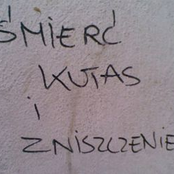 ŚMIERĆ
KUTAS
i
ZNISZCZENIE